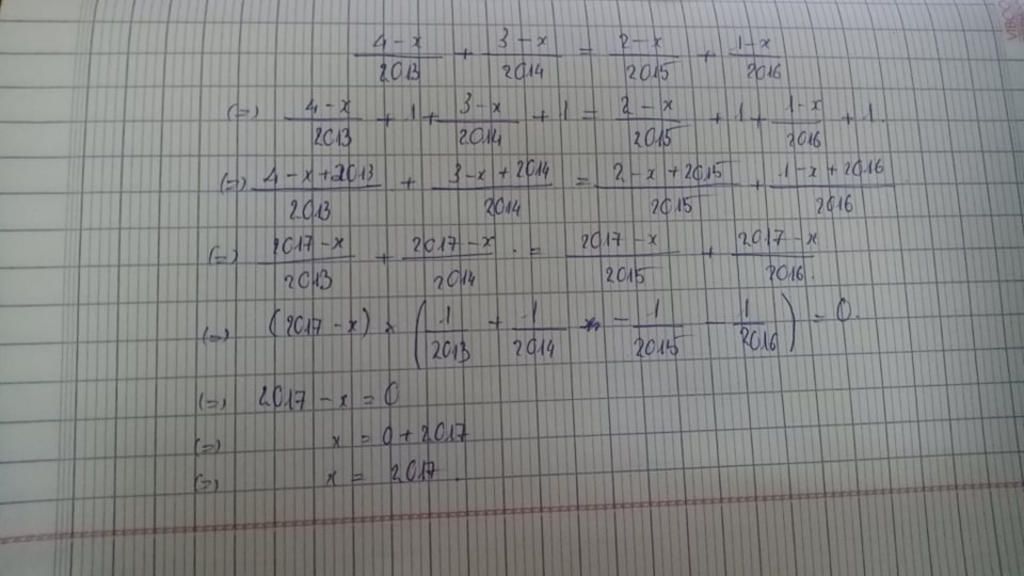 \frac{4-x}{2013} + \frac{3-x}{2014} = \frac{2-x}{2015} + \frac{1-x}{2016}
(=) \frac{4-x}{2013} + 1 + \frac{3-x}{2014} + 1 = \frac{2-x}{2015} + 1 + \frac{1-x}{2016} + 1.
(=) \frac{4-x+2013}{2013} + \frac{3-x+2014}{2014} = \frac{2-x+2015}{2015} + \frac{1-x+2016}{2016}
(=) \frac{2017-x}{2013} + \frac{2017-x}{2014} = \frac{2017-x}{2015} + \frac{2017-x}{2016}.
(=) (2017-x) × (\frac{1}{2013} + \frac{1}{2014} - \frac{1}{2015} - \frac{1}{2016}) = 0.
(=) 2017 - x = 0
(=) x = 0 + 2017
(=) x = 2017